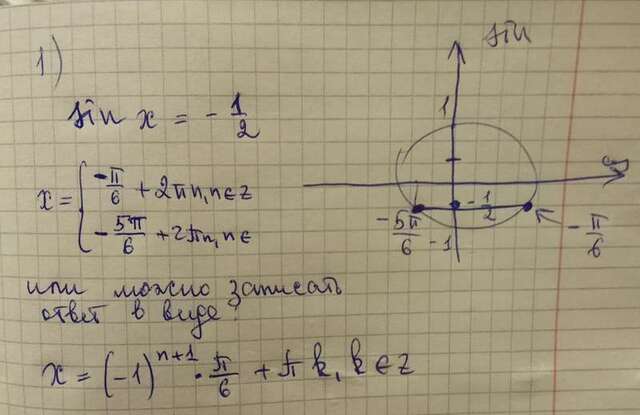 1)
sin x = - 1/2
x = { -π/6 + 2πn, n∈z
-5π/6 + 2πn, n∈
или можно записать
ответ в виде:
x = (-1)^(n+1) · π/6 + πk, k∈z
sin
1
-1/2
-5π/6
-1
-π/6